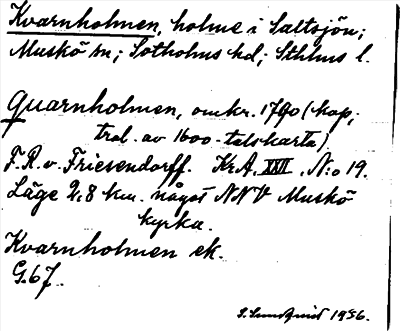 Kvarnholmen, holme i Saltsjön;
Muskö sn; Sotholms hd; Sthlms l.
Quarnholmen, omkr. 1790 (kop.
trol. av 1600-talskarta).
F. R. v. Friesendorff. Kr.A. XXII. N:o 19.
Läge 2,8 km. något NNV Muskö
kyrka.
Kvarnholmen ek.
G.67.
S. Sundquist 1936.